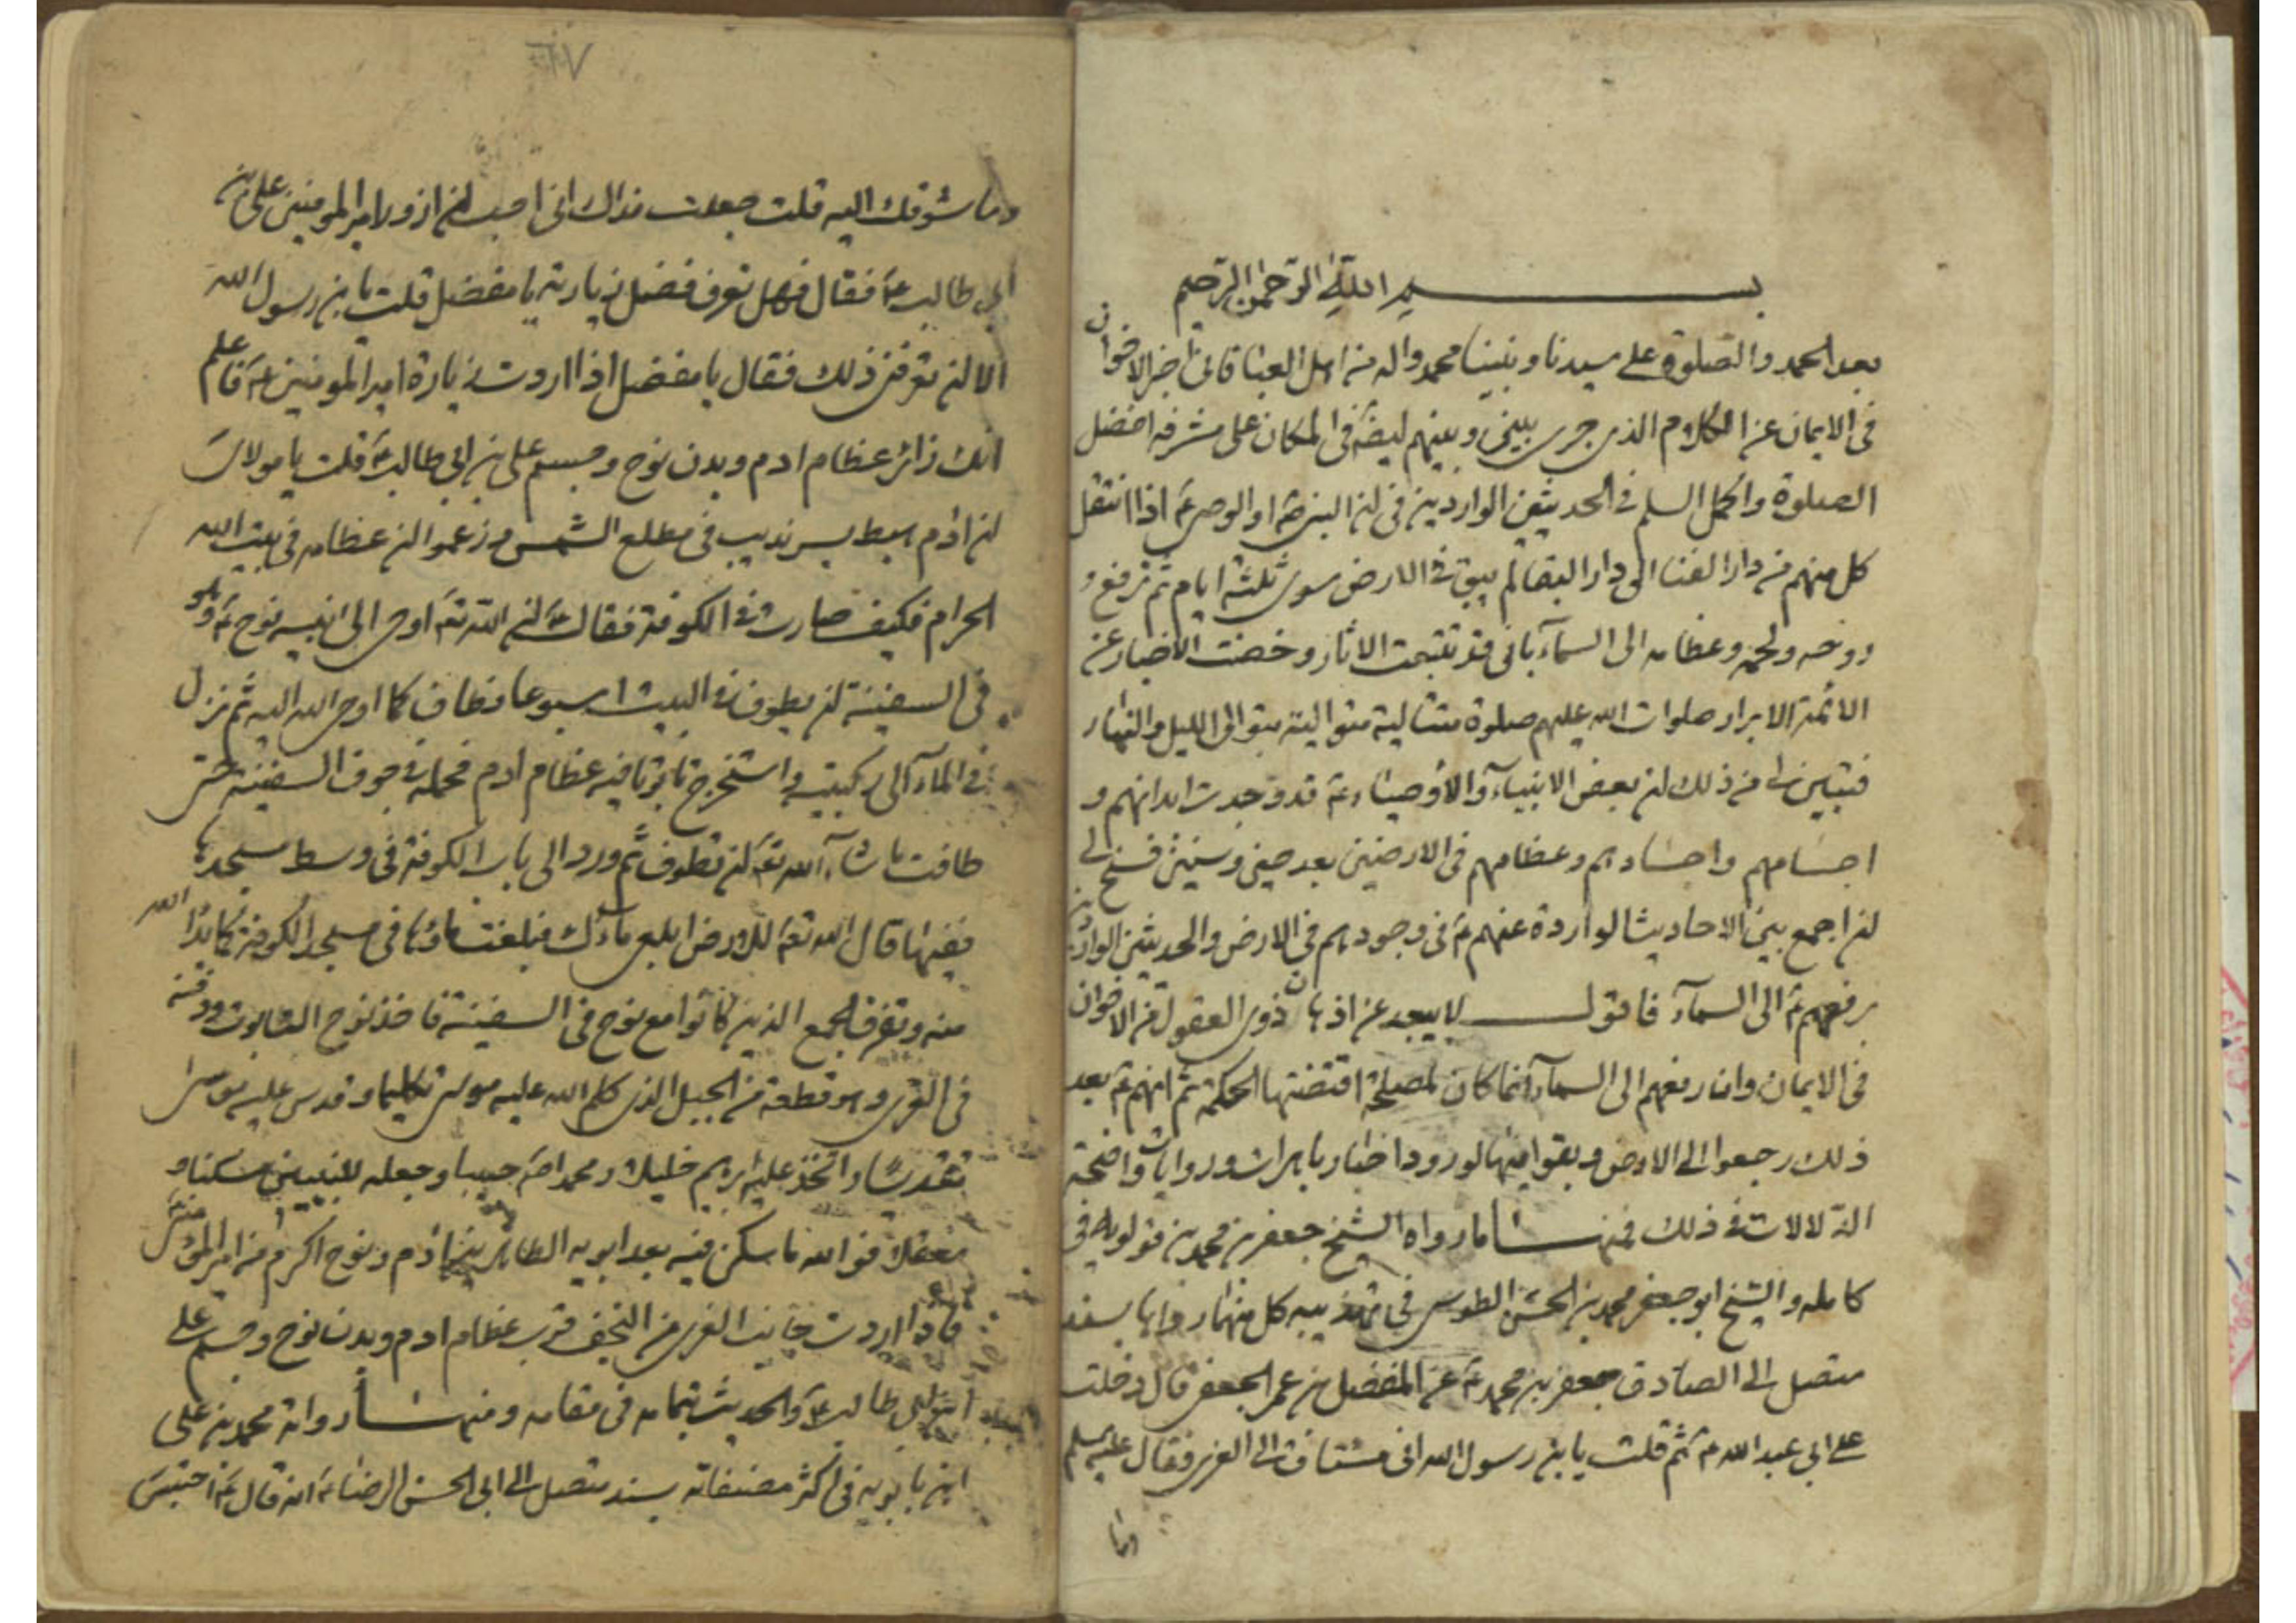 بسم الله الرحمن الرحيم
بعد الحمد والصلوة على سيدنا ونبينا محمد واله من اهل العبا فانى اخبر الاخوان
فى الايمان عن الكلام الذى جرى بينى وبينهم ليضة فى المكان على مشرفه افضل
الصلوة واكمل السلم فى الحديثين الواردين فى ان النبى ص او الوصى ع اذا انتقل
كل منهم من دار الفنا الى دار البقا لم يبق فى الارض سوى ثلثة ايام ثم ترفع و
روحه ولحمه وعظامه الى السمآء بانى قد تتبعت الاثار وخضت الاخبار عن
الائمة الابرار صلوات الله عليهم صلوة متتالية متوالية بتوالى الليل والنهار
فتبين لى من ذلك ان بعض الانبيآء والاوصياء ع قد وجدت ابدانهم و
اجسامهم واجسادهم وعظامهم فى الارضين بعد حين وسنين فسنح لى
ان اجمع بين الاحاديث الواردة عنهم ع فى وجودهم فى الارض والحديثين الواردين
برفعهم ع الى السمآء فاقول لا يبعد عن اذهان ذوى العقول من الاخوان
فى الايمان وان رفعهم الى السمآء انما كان لمصلحة اقتضتها الحكمة ثم انهم ع بعد
ذلك رجعوا الى الارض وبقوا فيها لورود اخبار باهرات وروايات واضحة
الدلالات فى ذلك فمنها ما رواه الشيخ جعفر بن محمد بن قولويه فى
كامله والشيخ ابو جعفر محمد بن الحسن الطوسى فى تهذيبه كل منهما رواها بسند
متصل الى الصادق جعفر بن محمد ع عن المفضل بن عمر الجعفى قال دخلت
على ابى عبد الله ع ثم قلت يا بن رسول الله انى مشتاق الى الغرى فقال عليه السلم
وما
٦٧
وما شوقك اليه قلت جعلت فداك انى احب ان ازور امير المومنين على بن
ابى طالب ع فقال فهل تعرف فضل زيارته يا مفضل قلت يا بن رسول الله
الا ان تعرفنى ذلك فقال يا مفضل اذا اردت زيارة امير المومنين ع فاعلم
انك زائر عظام ادم وبدن نوح وجسم على بن ابى طالب ع قلت يا مولاى
ان ادم هبط بسرنديب فى مطلع الشمس وزعموا ان عظامه فى بيت الله
الحرام فكيف صارت فى الكوفة فقال ع ان الله تع اوحى الى نبيه نوح ع وهو
فى السفينة ان يطوف فى البيت اسبوعا فطاف كما اوحى الله اليه ثم نزل
فى المآء الى ركبتيه واستخرج تابوتا فيه عظام ادم فحمله فى جوف السفينة حتى
طافت ما شآء الله تع ان تطوف ثم ورد الى باب الكوفة فى وسط مسجدها
ففيها قال الله تع للارض ابلعى مآءك فبلعت مائها فى مسجد الكوفة كما بدا الله
منه وتفرق الجمع الذين كانوا مع نوح فى السفينة فاخذ نوح التابوت ودفنه
فى الغرى وهو قطعة من الجبل الذى كلم الله عليه موسى تكليما وقدس عليه موسى
تقديسا واتخذ عليه ابرهيم خليلا ومحمدا ص حبيبا وجعله للنبيين مسكنا و
معقلا فو الله ما سكن فيه بعد ابويه الطاهرين ادم ونوح اكرم من امير المؤمنين ع
فاذا اردت جانب الغرى من النجف فزر عظام ادم وبدن نوح وجسم على
ابن ابى طالب ع والحديث بتمامه فى مقامه ومنها رواه محمد بن على
ابن بابويه فى اكثر مصنفاته بسند متصل الى ابى الحسن الرضا ع انه قال ع احتبس